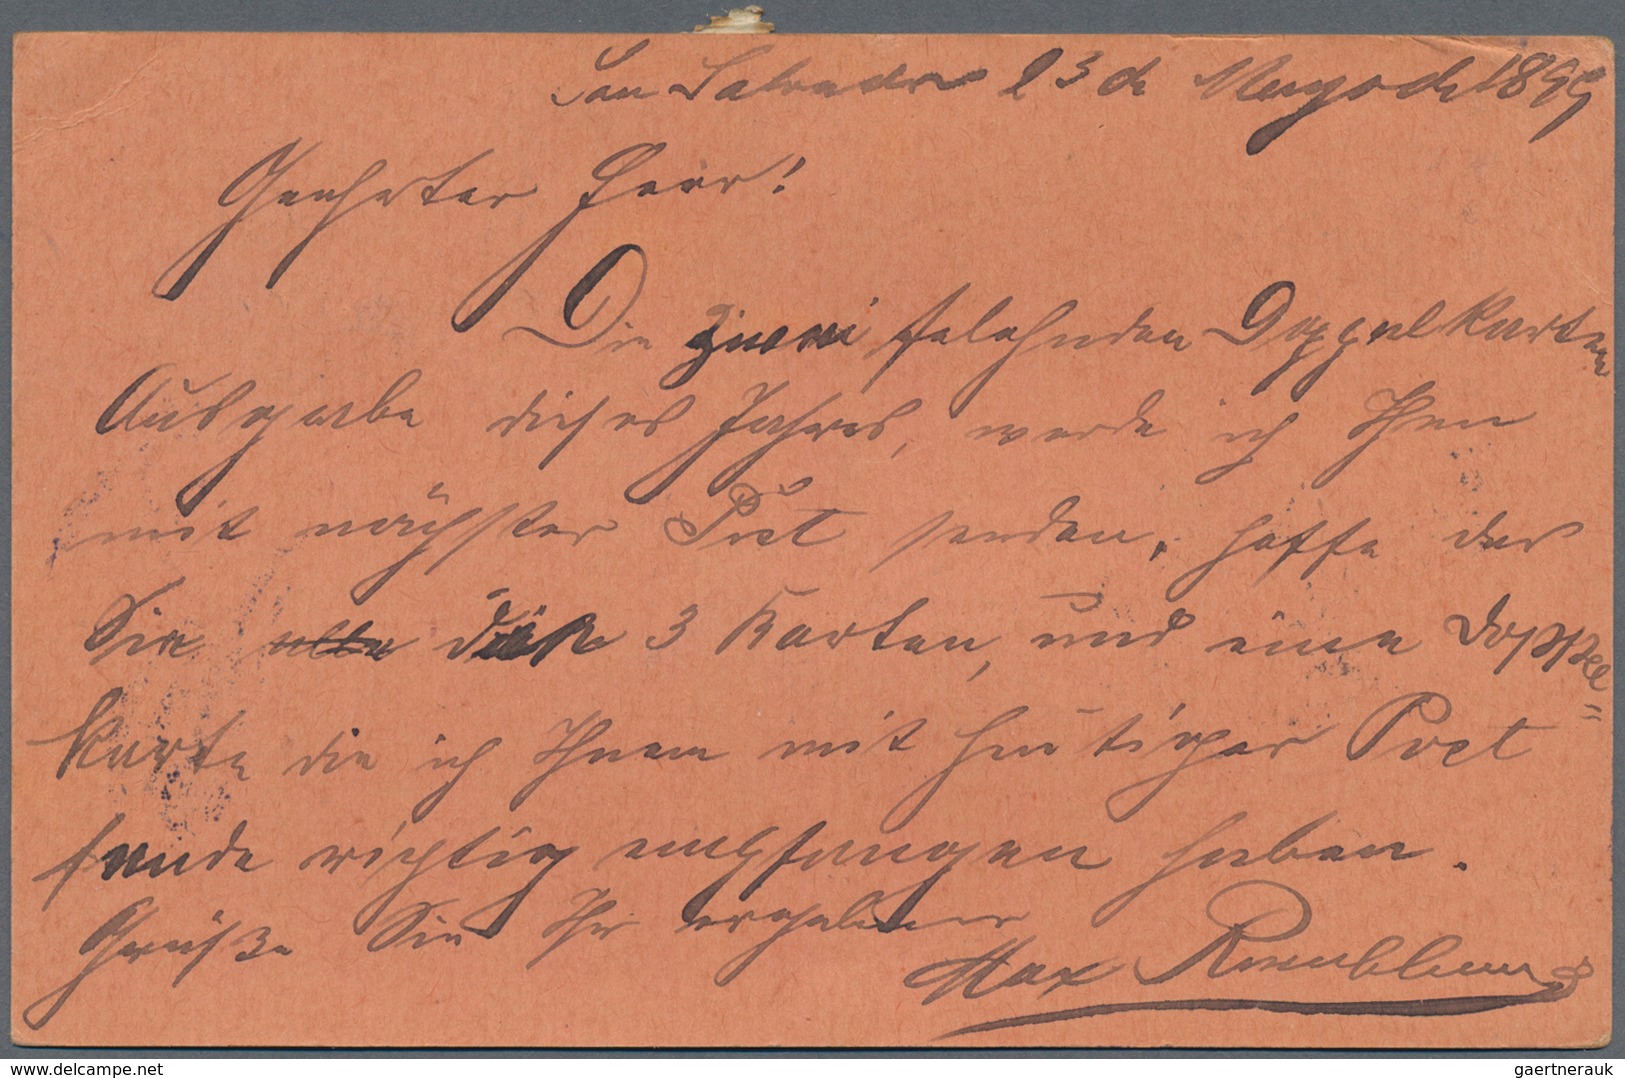 San Salvador 23 de Mayo de 1899
Geehrter Herr!
Die zwei fehlenden Doppelkarten
Ausgabe dieses Jahres, werde ich Ihnen
mit nächster Post senden, hoffe das
Sie alle die 3 Karten, und eine Doppel=
karte die ich Ihnen mit heutiger Post
sende richtig empfangen haben.
Grüße Sie Ihr ergebener
Max Rosenblum
delcampe.net
gaertnerauk